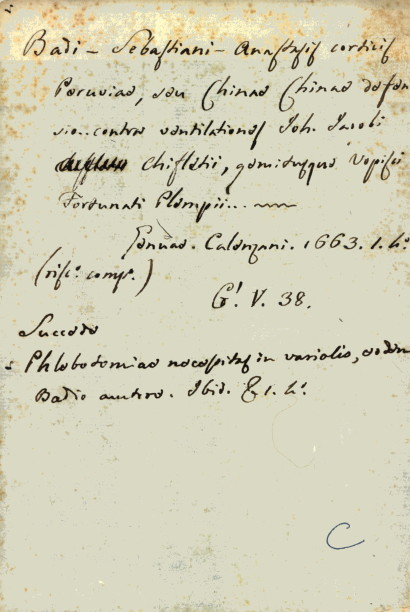 Badi - Sebastiani - Anastasis corticis
Peruviae, seu Chinae Chinae defen
sio.. contra ventilationes Joh. Jacobi
Chifletii, gemitusque Vopisci
Fortunati Plempii...
Genuae. Calenzani. 1663. 1. 4º
(rise. comp.)
G! V. 38.
Succede
Phlebotomiae necessitas in variolis, eodem
Badio auctore. Ibid. & 1. 4º
C